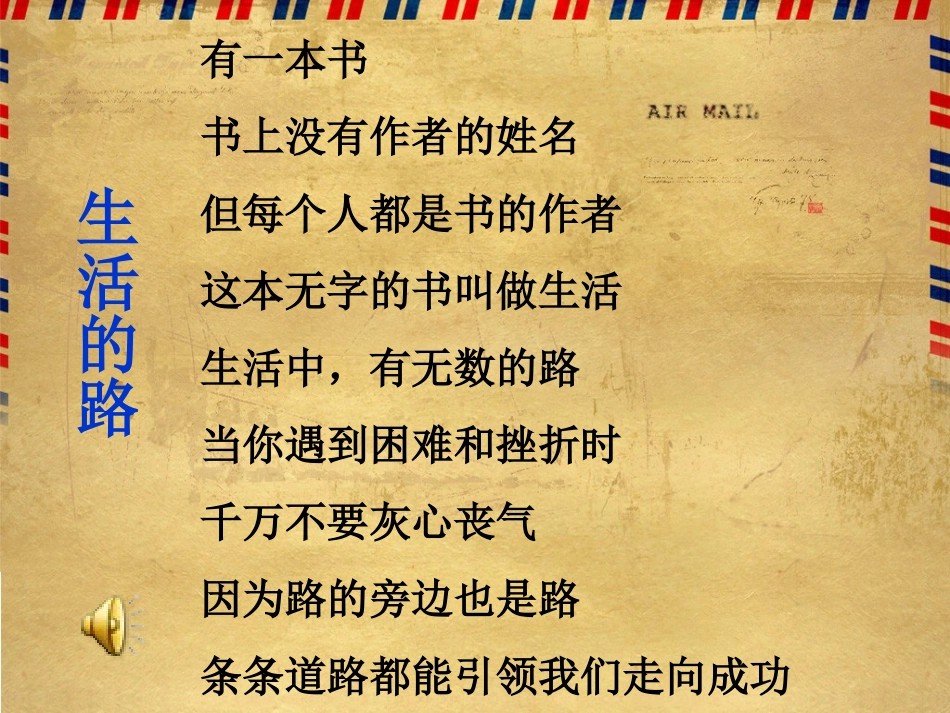 生活的路
有一本书
书上没有作者的姓名
但每个人都是书的作者
这本无字的书叫做生活
生活中，有无数的路
当你遇到困难和挫折时
千万不要灰心丧气
因为路的旁边也是路
条条道路都能引领我们走向成功
AIR MAIL